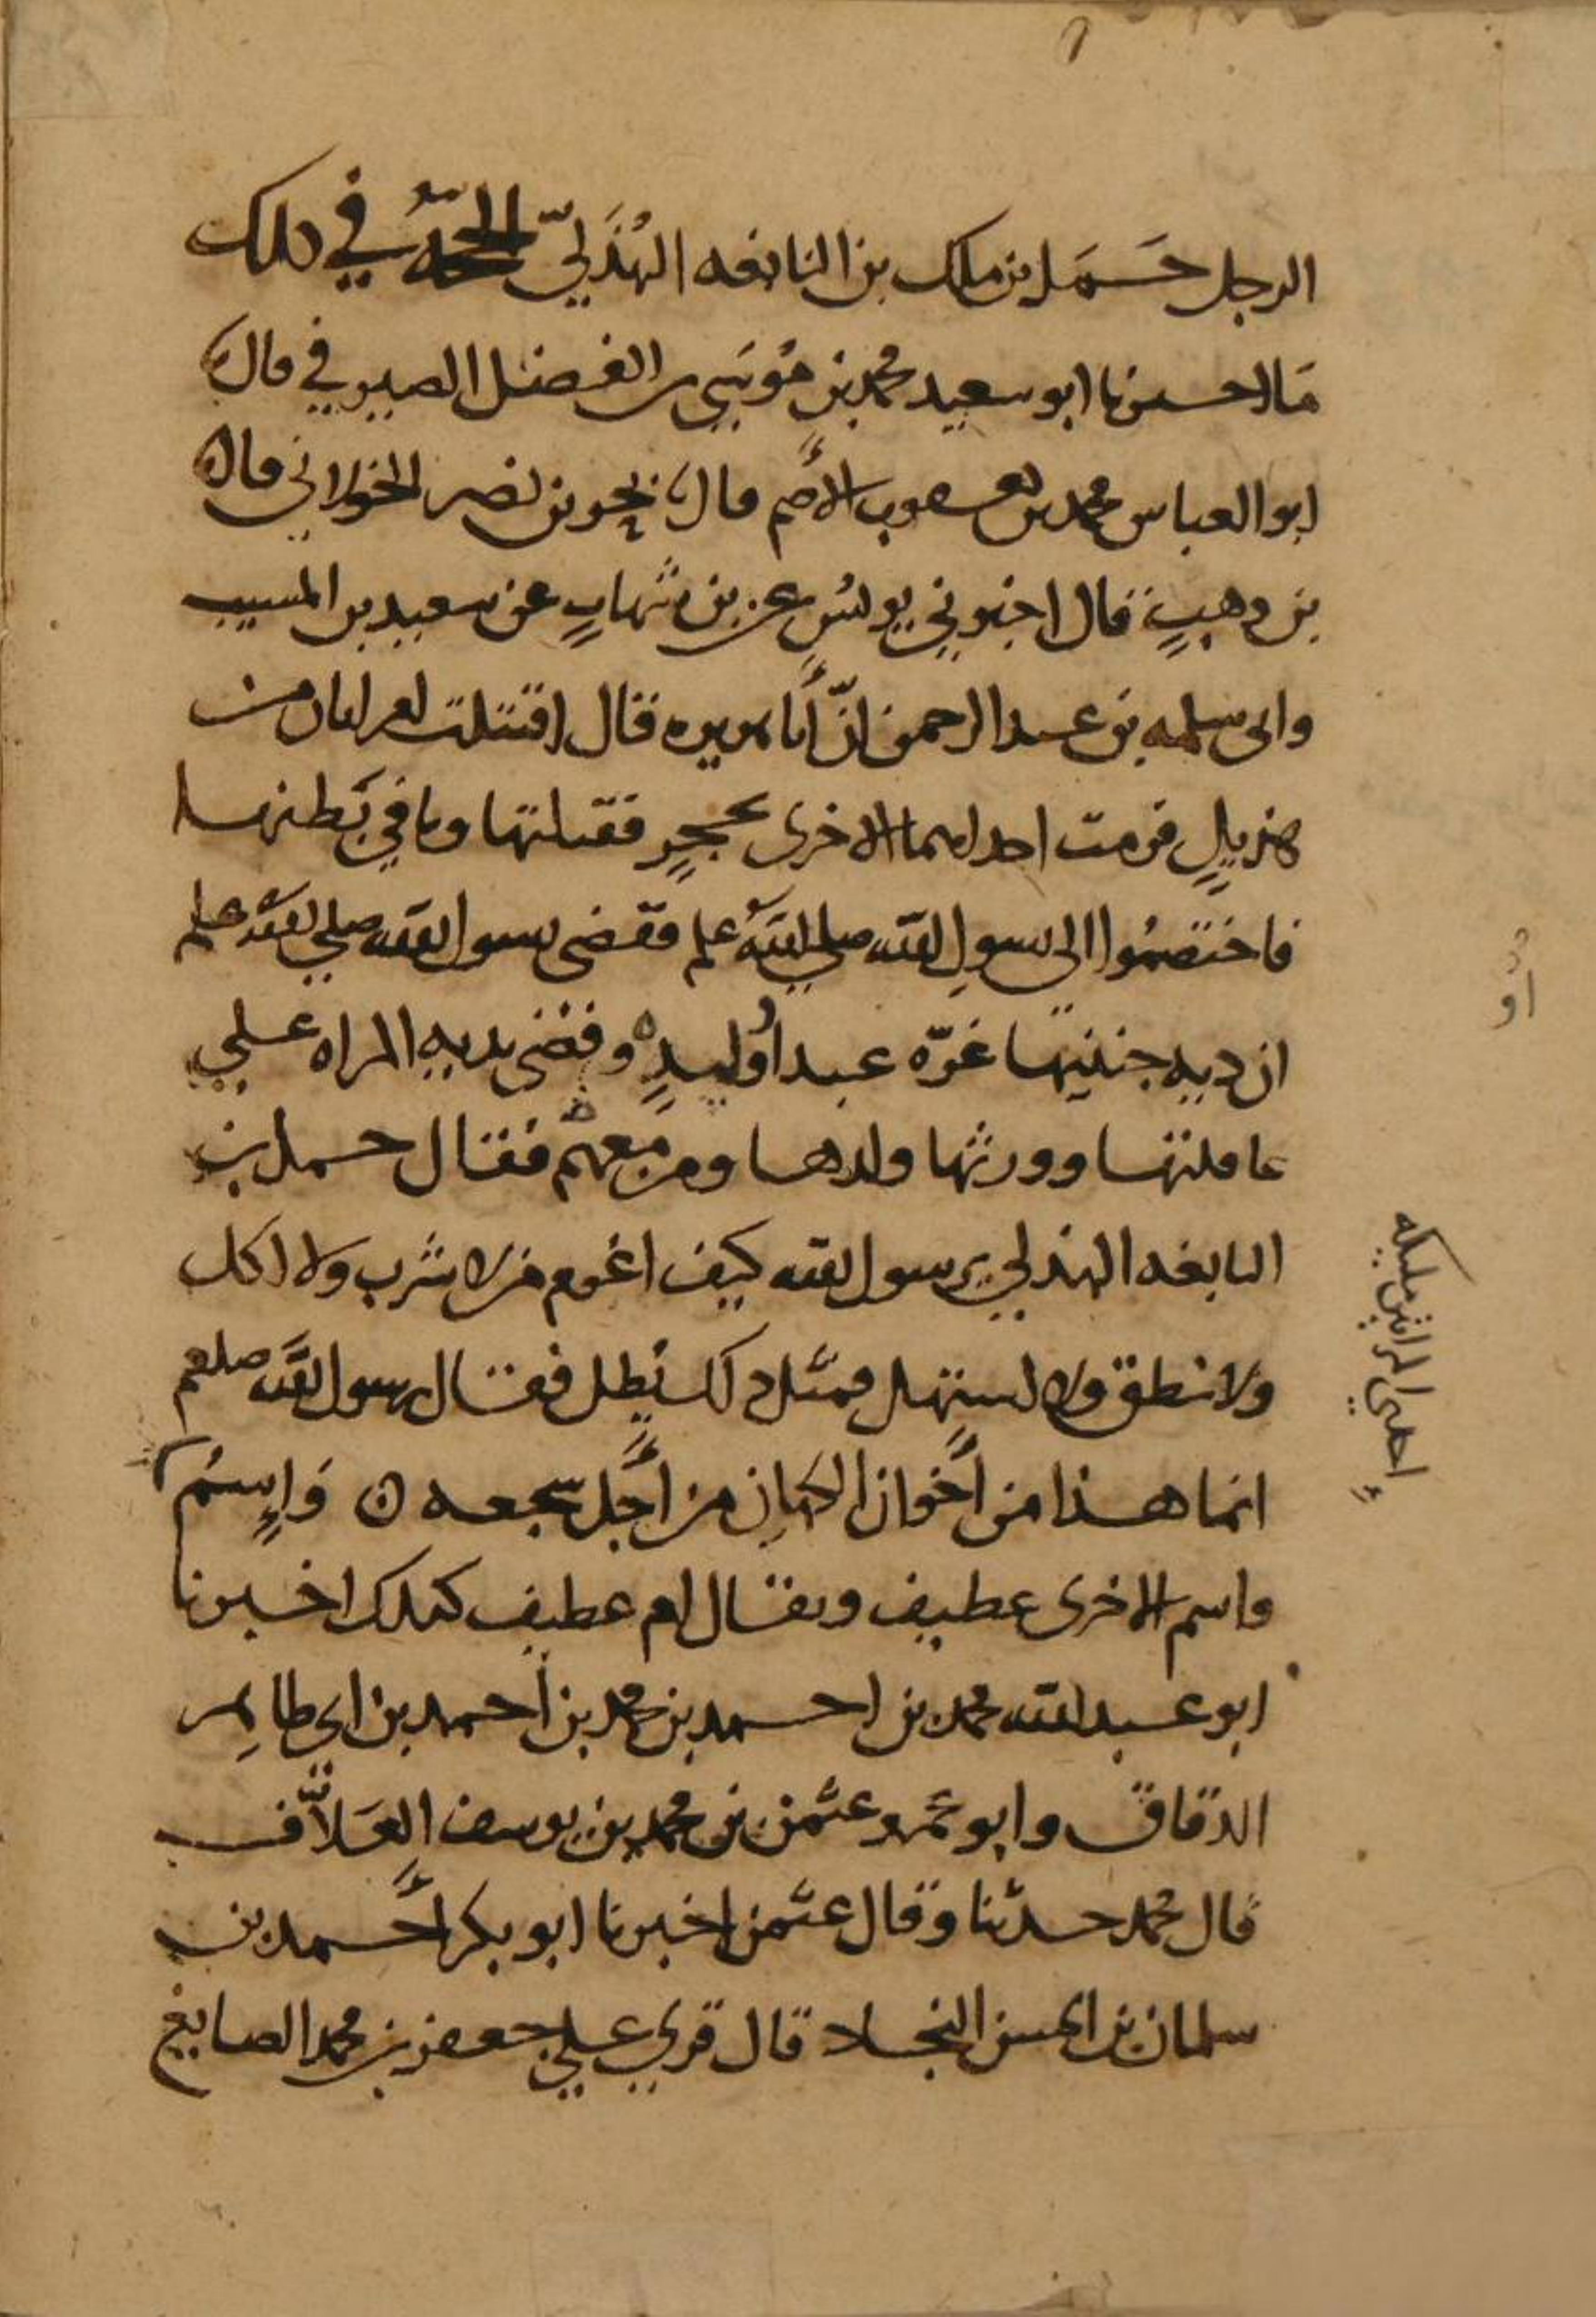 الرجل حَمَل بن ملك بن النابغه الهُذَليّ الحجّةُ في ذلك
مَا اخبرنا ابو سعيد محمد بن مُوسَى بن الفضل الصيرفي قال
ابو العباس محمد بن يعقوب الأصم قال بحر بن نصر الخولاني قال
بن وهبٍ قال اخبرني يونس عن بن شهابٍ عن سعيد بن المسيب
وابي سلمه بن عبد الرحمن انّ أبا هريره قال اقتتلت امراتان من
هذيلٍ فرمت احداهما الاخرى بحجرٍ فقتلتها وما في بَطنها
فاختصمُوا الى رسولِ الله صلى اللهُ علم فقضى رسول الله صلى اللهُ علم
ان ديه جنينها غرّه عبد أو وليدٍه وقضى بديه المراه على
عاقلتها وورثها ولدها ومن معهم فقال حمل بن
النابغه الهذلي يرسول الله كيف اغرم من لا شرب ولا اكل
ولا نطق ولا استهل فمثل ذلك يُطل فقال رسول الله صلعم
انما هذا من أخوان الكهان من أجل سجعه ٥ وَإسمُ
واسم الاخرى عطيف ويقال ام عطيف كذلك اخبرنا
ابو عبد الله محمد بن احمد بن محمد بن أحمد بن ابي طاهِر
الدقاق وابو عَمرو عثمن بن محمد بن يوسف العَلاّف
قال محمد حدثنا وقال عثمن اخبرنا ابو بكر أحمد بن
سلمان بن الحسن النجاد قال قري على جعفر بن محمد الصايغ
إحدى المراتين مليكه
او